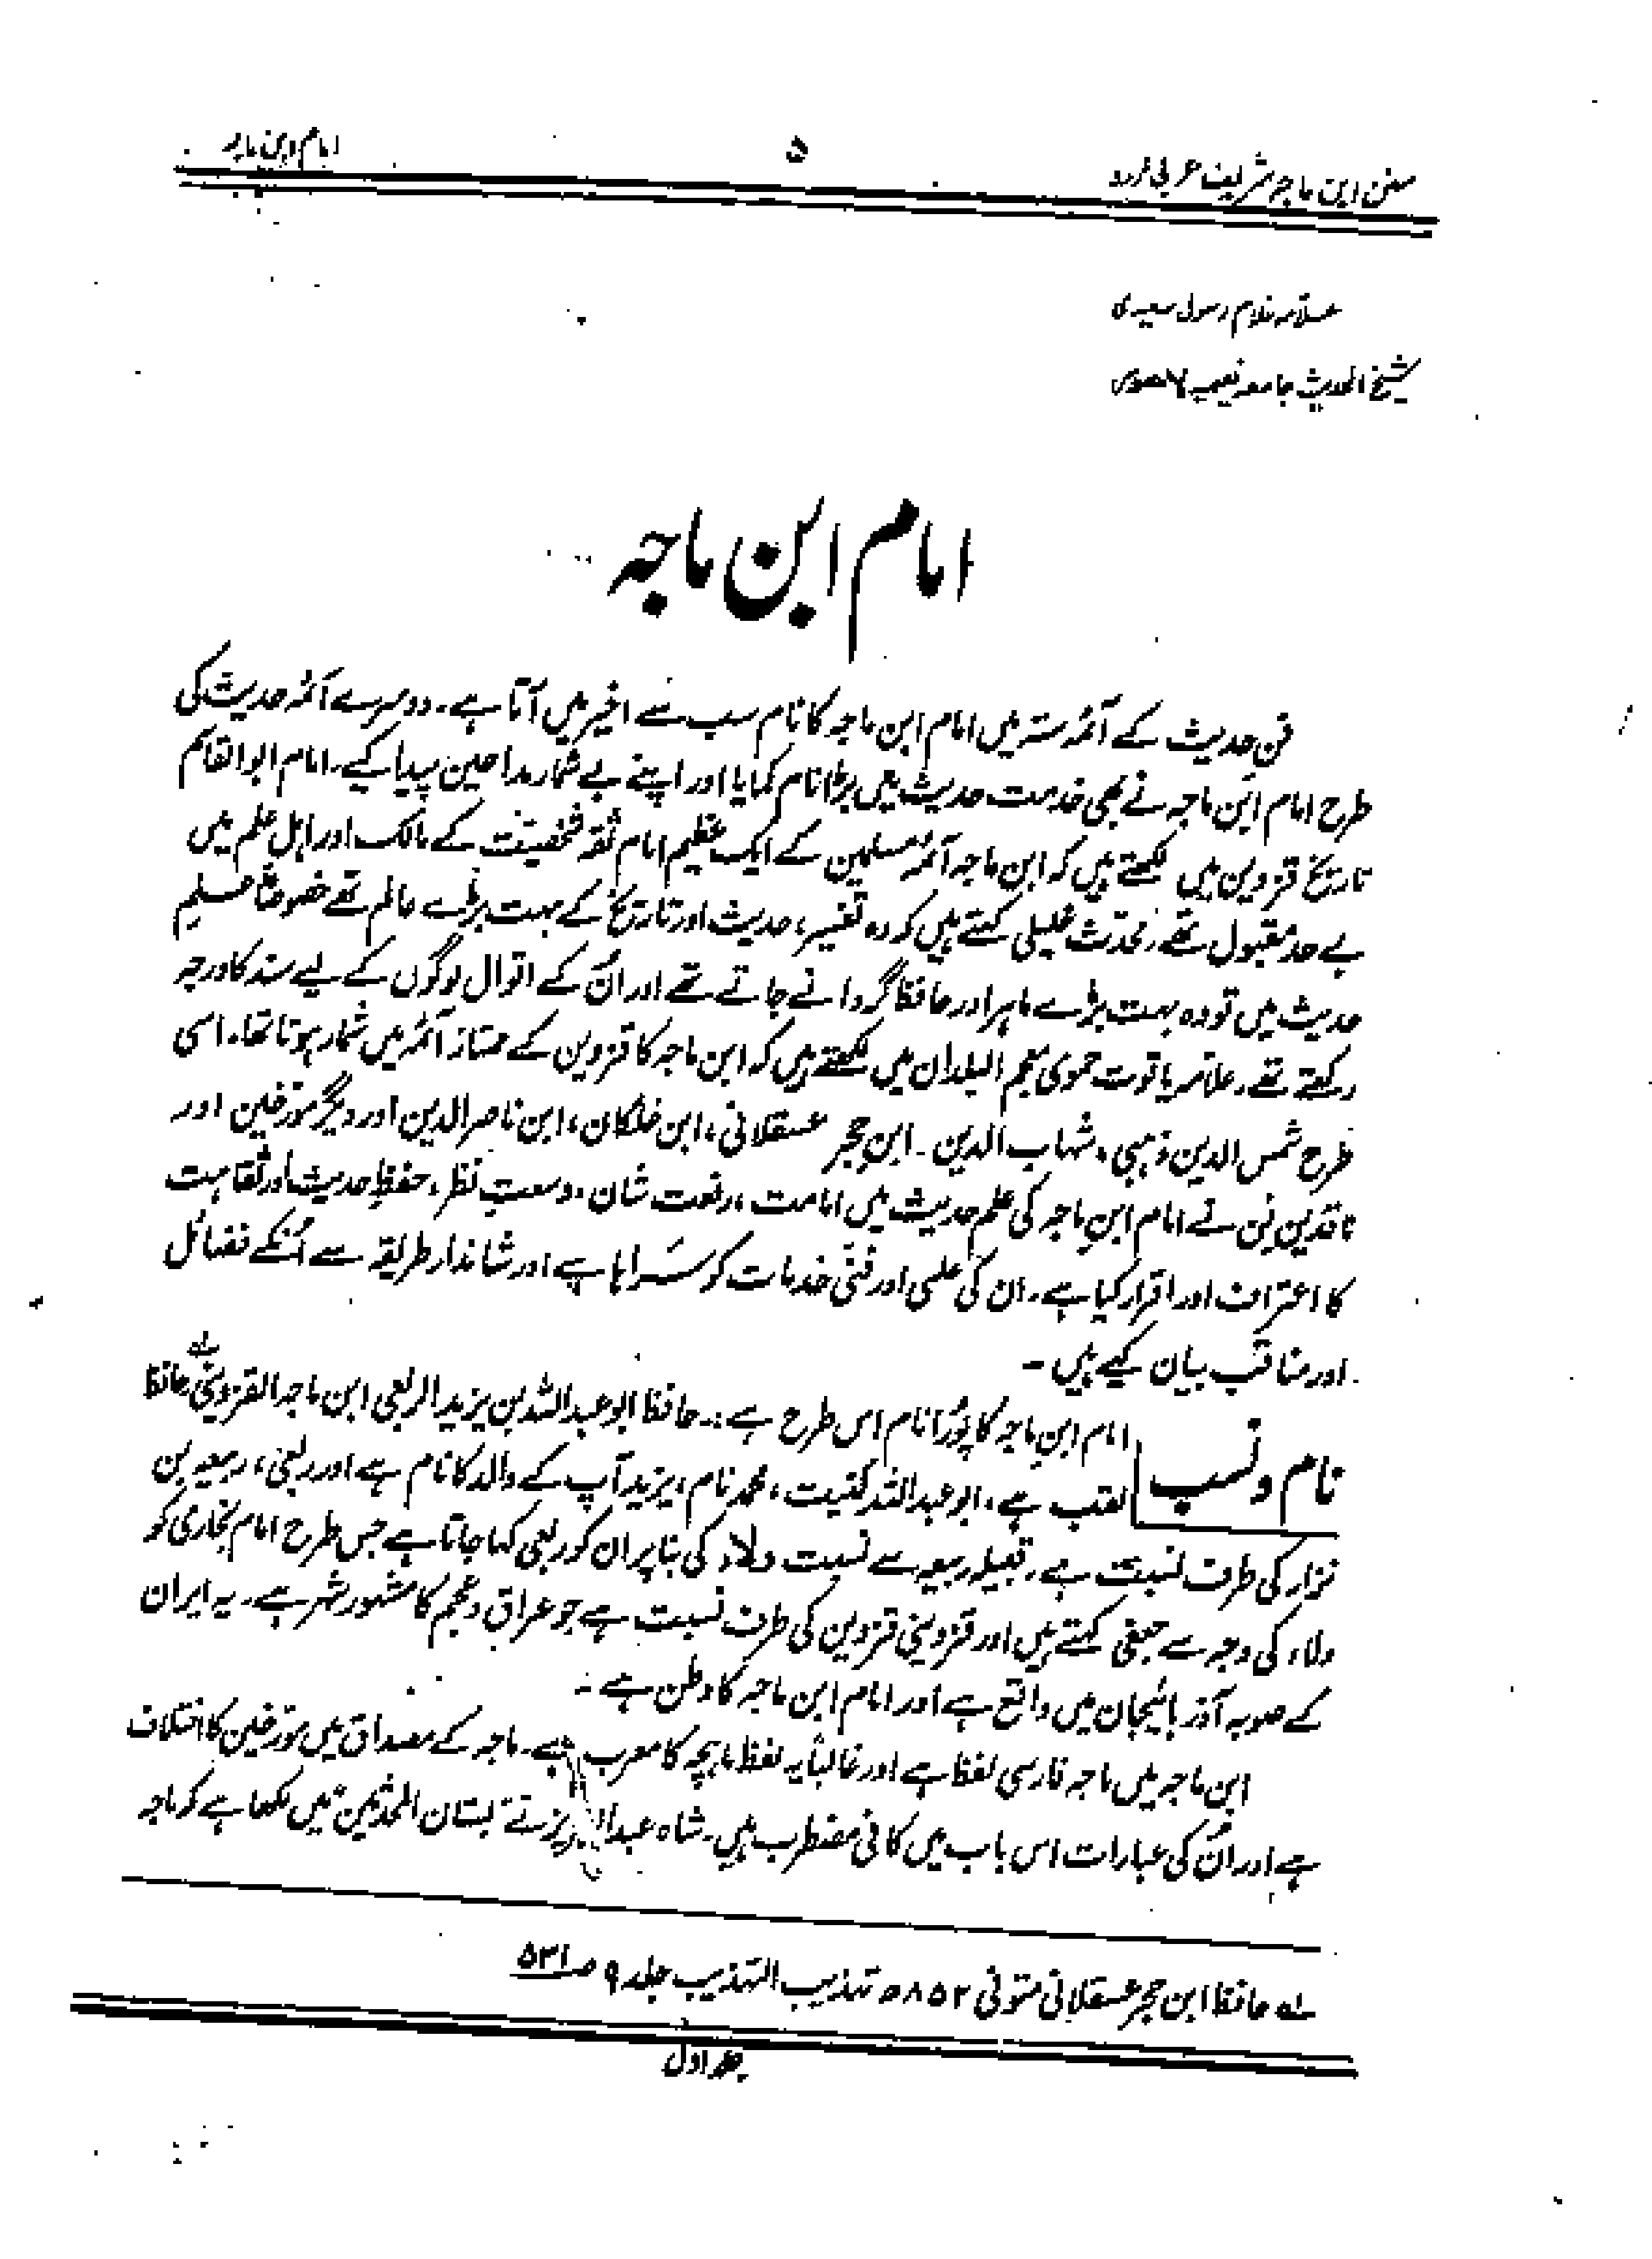 سنن ابن ماجہ شریف عربی اردو
۵
امام ابن ماجہ
علامہ غلام رسول سعیدی
شیخ الحدیث جامعہ نعیمیہ
امام ابن ماجہ
فن حدیث کے آئمہ ستہ میں امام ابن ماجہ کا نام سب سے اخیر میں آتا ہے۔ دوسرے آئمہ حدیث کی
طرح امام ابن ماجہ نے بھی خدمت حدیث میں بڑا نام کمایا اور اپنے بے شمار مداحین پیدا کیے۔ امام ابوالقاسم
تاریخ قزوین میں لکھتے ہیں کہ ابن ماجہ آئمہ مسلمین کے ایک عظیم امام ثقہ شخصیت کے مالک اور اہل علم میں
بے حد مقبول تھے، محدث خلیلی کہتے ہیں کہ وہ تفسیر، حدیث اور تاریخ کے بہت بڑے عالم تھے خصوصاً علم
حدیث میں تو وہ بہت بڑے ماہر اور حافظ گردانے جاتے تھے اور اُن کے اقوال لوگوں کے لیے سند کا درجہ
رکھتے تھے، علامہ یاقوت حموی معجم البلدان میں لکھتے ہیں کہ ابن ماجہ کا قزوین کے ممتاز آئمہ میں شمار ہوتا تھا۔ اسی
طرح شمس الدین ذہبی، شہاب الدین۔ ابن حجر عسقلانی، ابن خلکان، ابن ناصر الدین اور دیگر مؤرخین اور
ناقدین فن نے امام ابن ماجہ کی علم حدیث میں امامت، رفعت شان، وسعتِ نظر، حفظِ حدیث اور ثقاہت
کا اعتراف اور اقرار کیا ہے۔ ان کی علمی اور فنّی خدمات کو سَراہا ہے اور شاندار طریقہ سے اُنکے فضائل
اور مناقب بیان کیے ہیں۔
نام و نسب
امام ابن ماجہ کا پُورا نام اس طرح ہے:۔ حافظ ابوعبداللہ بن یزید الربعی ابن ماجہ القزوینی لہ حافظ
لقب ہے، ابوعبداللہ کنیت، محمد نام، یزید آپ کے والد کا نام ہے اور ربعی، ربیعہ بن
نزار کی طرف نسبت ہے، قبیلہ ربیعہ سے نسبت ولاء کی بنا پر ان کو ربعی کہا جاتا ہے جس طرح امام بخاری کو
ولاء کی وجہ سے جعفی کہتے ہیں اور قزوینی قزوین کی طرف نسبت ہے جو عراق و عجم کا مشہور شہر ہے۔ یہ ایران
کے صوبہ آذر بائیجان میں واقع ہے اور امام ابن ماجہ کا وطن ہے۔
ابن ماجہ میں ماجہ فارسی لفظ ہے اور غالباً یہ لفظ ماہچہ کا معرب ہے۔ ماجہ کے مصداق میں مؤرخین کا اختلاف
ہے اور اُن کی عبارات اس باب میں کافی مضطرب ہیں۔ شاہ عبدالعزیز نے بستان المحدثین میں لکھا ہے کہ ماجہ
لہ حافظ ابن حجر عسقلانی متوفی ۸۵۲ھ تہذیب التہذیب جلد ۹ صـ ۵۳۱
جلد اول